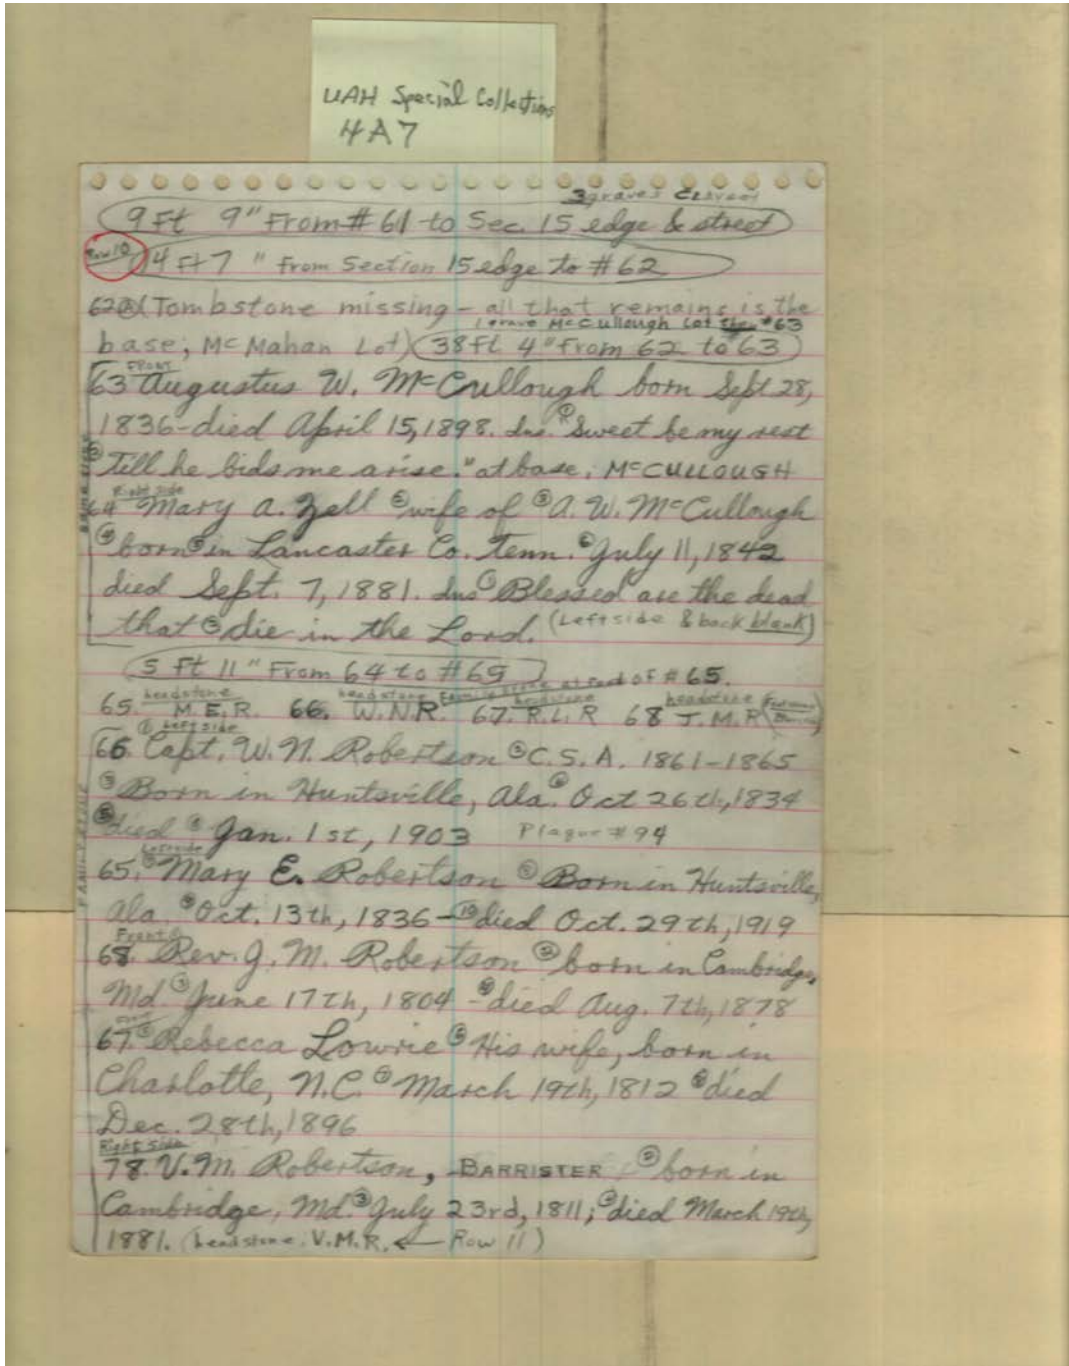 UAH Special Collections
4A7
3 graves
9 Ft 9" From # 61 to Sec. 15 edge & street
Row 10
14 Ft 7" From Section 15 edge to #62
62 Ⓐ (Tombstone missing - all that remains is the
1 grave McCullough Lot #63
base; McMahan Lot) 38 ft 4" from 62 to 63
FRONT
63 Augustus W. McCullough born Sept 28,
1836-died April 15, 1898. Ins. ① "Sweet be my rest
② Till he bids me arise." at base: McCULLOUGH
Right side
64 Mary A. Zell ② wife of ③ A. W. McCullough
④ born ⑤ in Lancaster Co. Tenn. ⑥ July 11, 1842
died Sept. 7, 1881. Ins ① Blessed are the dead
that ② die in the Lord. (Left side & back blank)
5 Ft 11" From 64 to #65
at end of #65.
headstone headstone headstone headstone
65. M.E.R. 66. W.N.R. 67. R.L.R 68 J.M.R
① Left side
66. Capt. W. N. Robertson ② C.S.A. 1861-1865
③ Born in Huntsville, Ala. ④ Oct 26th, 1834
⑤ died ⑥ Jan. 1st, 1903 Plaque #94
Left side
65. ⑦ Mary E. Robertson ⑧ Born in Huntsville,
Ala. ⑨ Oct. 13th, 1836 - ⑩ died Oct. 29th, 1919
Front ①
68. Rev. J. M. Robertson ② born in Cambridge,
Md. ③ June 17th, 1804 - ④ died Aug. 7th, 1878
67. ⑤ Rebecca Lowrie ⑥ His wife, born in
Charlotte, N.C. ⑦ March 19th, 1812 ⑧ died
Dec. 28th, 1896
Right side
78. V.M. Robertson, BARRISTER, ② born in
Cambridge, Md. ③ July 23rd, 1811; ④ died March 19th,
1881. (headstone. V.M.R. ← Row 11)